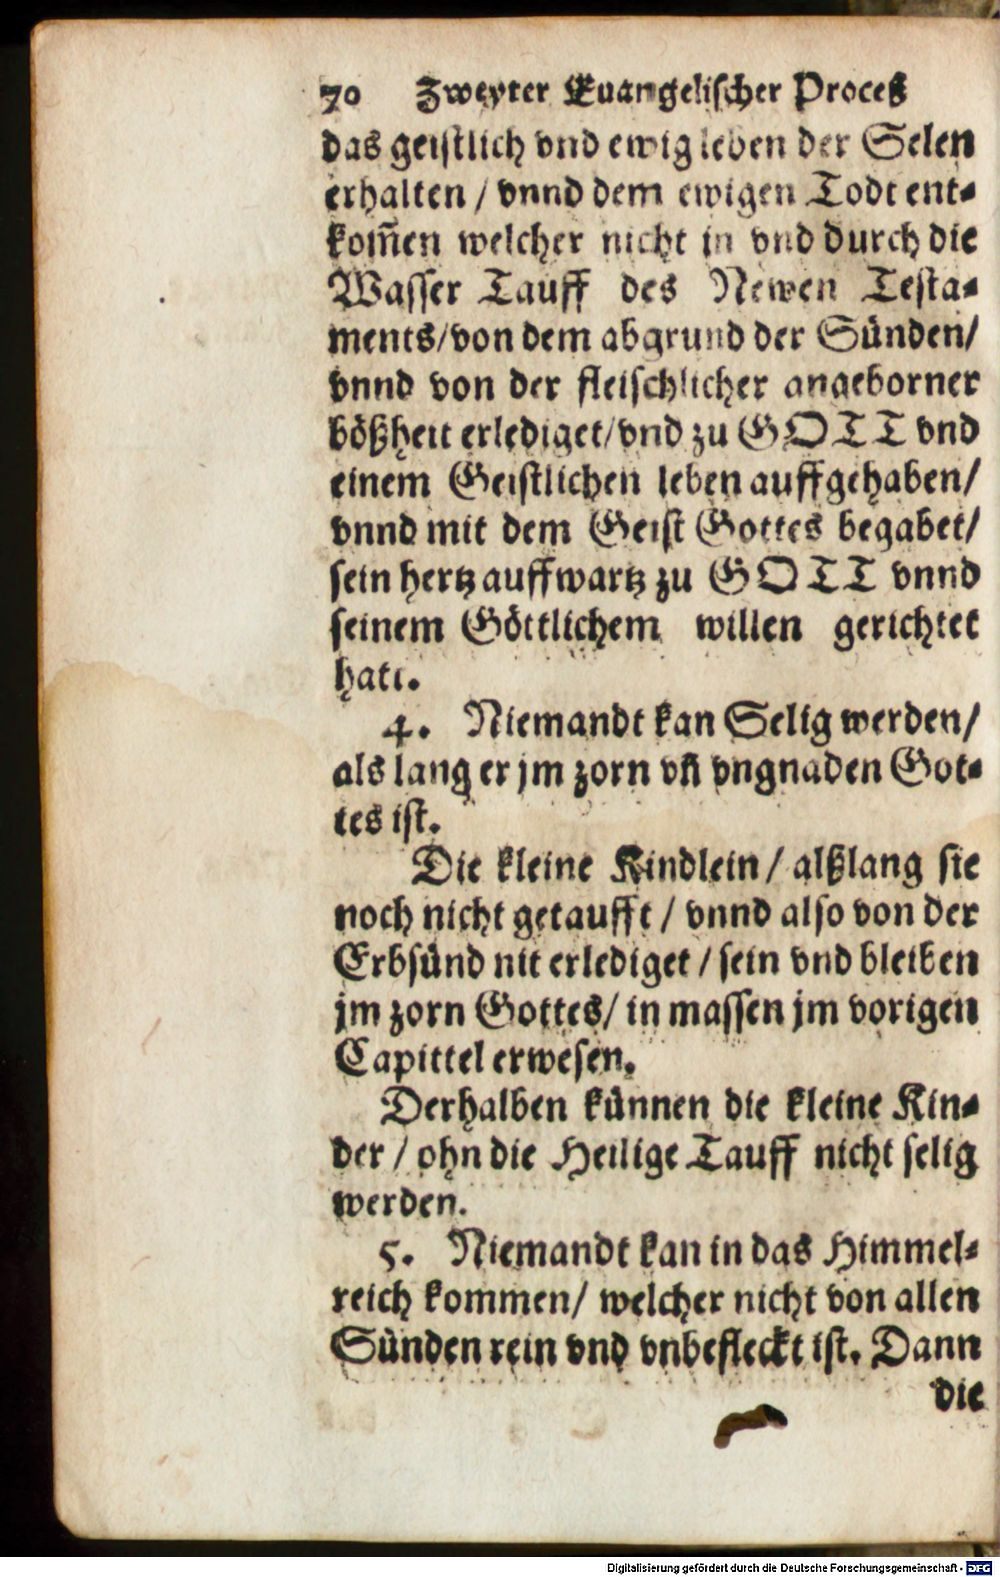 70 Zweyter Euangelischer Proceß
das geistlich vnd ewig leben der Selen
erhalten / vnnd dem ewigen Todt ent-
kom̃en welcher nicht in vnd durch die
Wasser Tauff des Newen Testa-
ments/von dem abgrund der Sünden/
vnnd von der fleischlicher angeborner
bößheit erlediget/vnd zu GOTT vnd
einem Geistlichen leben auffgehaben/
vnnd mit dem Geist Gottes begabet/
sein hertz auffwartz zu GOTT vnnd
seinem Göttlichem willen gerichtet
hatt.
4. Niemandt kan Selig werden/
als lang er jm zorn vñ vngnaden Got-
tes ist.
Die kleine Kindlein / alßlang sie
noch nicht getaufft / vnnd also von der
Erbsünd nit erlediget / sein vnd bleiben
jm zorn Gottes/ in massen jm vorigen
Capittel erwesen.
Derhalben künnen die kleine Kin-
der / ohn die Heilige Tauff nicht selig
werden.
5. Niemandt kan in das Himmel-
reich kommen/ welcher nicht von allen
Sünden rein vnd vnbefleckt ist. Dann
die
Digitalisierung gefördert durch die Deutsche Forschungsgemeinschaft - DFG